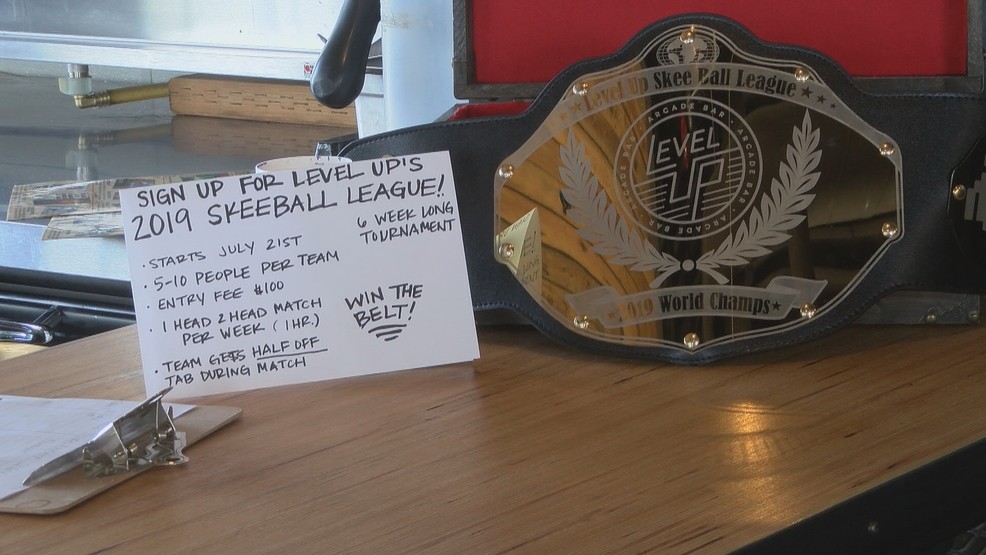 SIGN UP FOR LEVEL UP'S
2019 SKEEBALL LEAGUE!
6 WEEK LONG
TOURNAMENT
· STARTS JULY 21ST
· 5-10 PEOPLE PER TEAM
· ENTRY FEE $100
· 1 HEAD 2 HEAD MATCH
PER WEEK (1 HR.)
· TEAM GETS HALF OFF
TAB DURING MATCH
WIN THE
BELT!
Level Up Skee Ball League
ARCADE BAR · ARCADE BAR · ARCADE BAR ·
LEVEL
UP
2019 World Champs